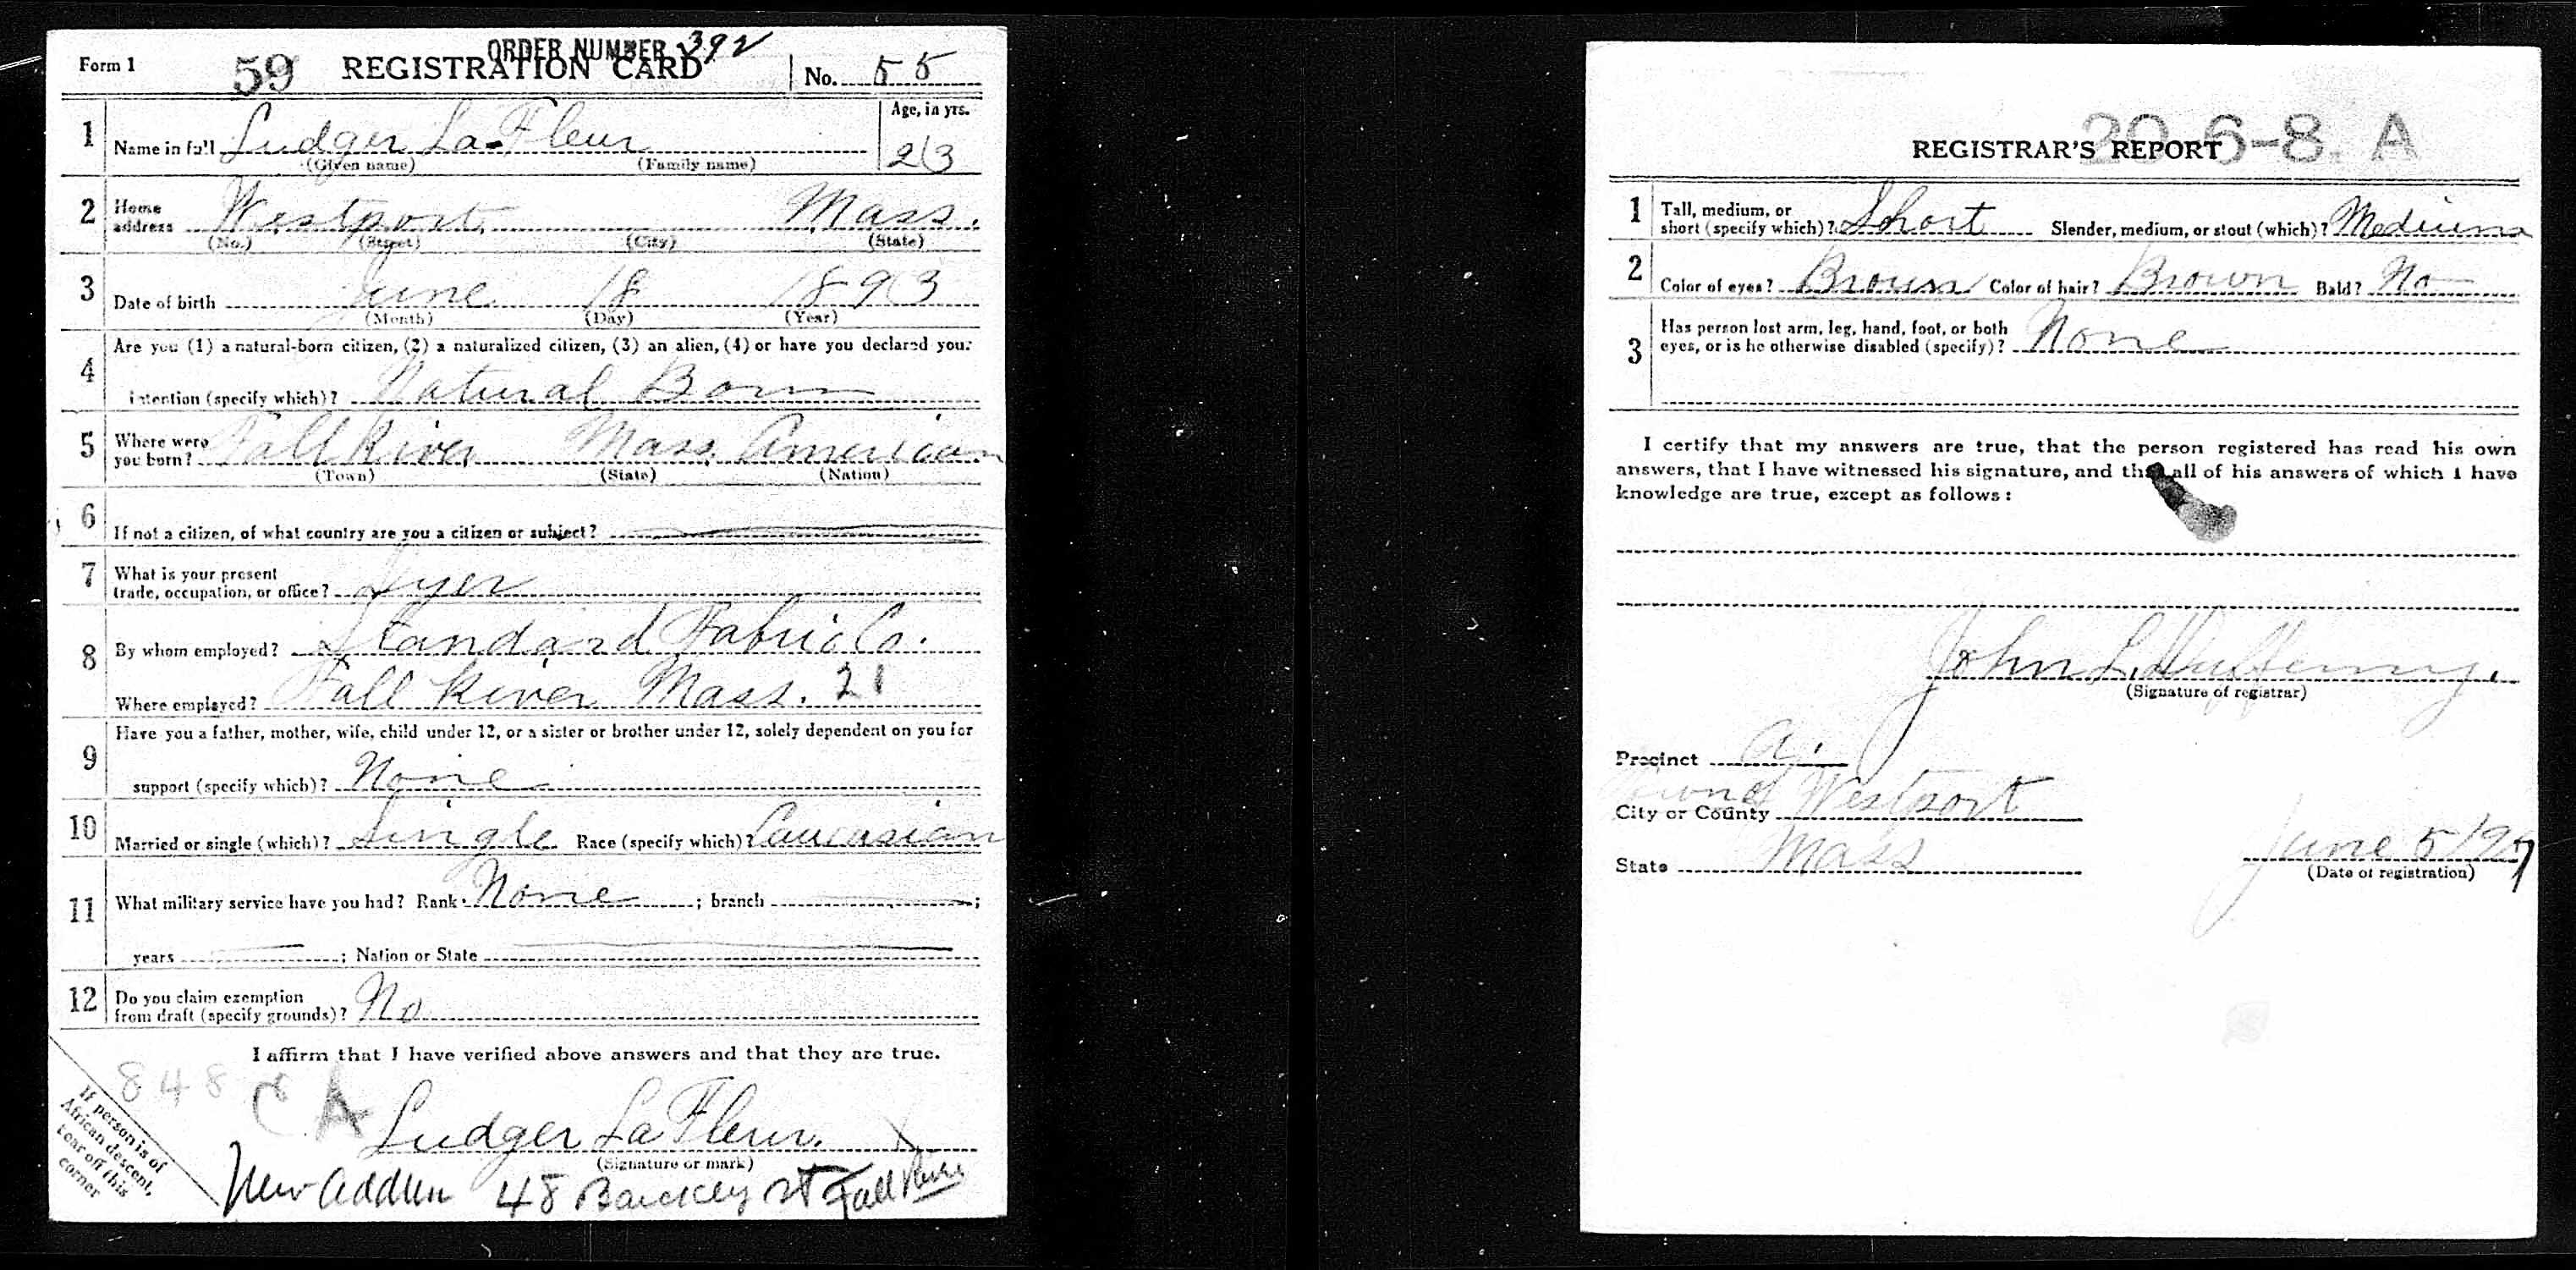 ORDER NUMBER 392
Form 1 59 REGISTRATION CARD No. 55
1 Name in full Ludger La-Fleur Age, in yrs. 23
(Given name) (Family name)
2 Home address Westport Mass.
(No.) (Street) (City) (State)
3 Date of birth June 18 1893
(Month) (Day) (Year)
4 Are you (1) a natural-born citizen, (2) a naturalized citizen, (3) an alien, (4) or have you declared your
intention (specify which)? Natural Born
5 Where were you born? Fall River Mass. American
(Town) (State) (Nation)
6 If not a citizen, of what country are you a citizen or subject?
7 What is your present
trade, occupation, or office? Dyer
8 By whom employed? Standard Fabric Co.
Where employed? Fall River Mass. 21
9 Have you a father, mother, wife, child under 12, or a sister or brother under 12, solely dependent on you for
support (specify which)? None
10 Married or single (which)? Single Race (specify which)? Caucasian
11 What military service have you had? Rank None ; branch ;
years ; Nation or State
12 Do you claim exemption
from draft (specify grounds)? No
I affirm that I have verified above answers and that they are true.
848 A
Ludger La Fleur.
(Signature or mark)
If person is of
African descent,
tear off this
corner
New address 48 Barckley St Fall River
20-6-8. A
REGISTRAR'S REPORT
1 Tall, medium, or
short (specify which)? Short Slender, medium, or stout (which)? Medium
2 Color of eyes? Brown Color of hair? Brown Bald? No
3 Has person lost arm, leg, hand, foot, or both
eyes, or is he otherwise disabled (specify)? None
I certify that my answers are true, that the person registered has read his own
answers, that I have witnessed his signature, and that all of his answers of which I have
knowledge are true, except as follows:
John L.
(Signature of registrar)
Precinct A.
Town of
City or County Westport
State Mass June 5 1917
(Date of registration)